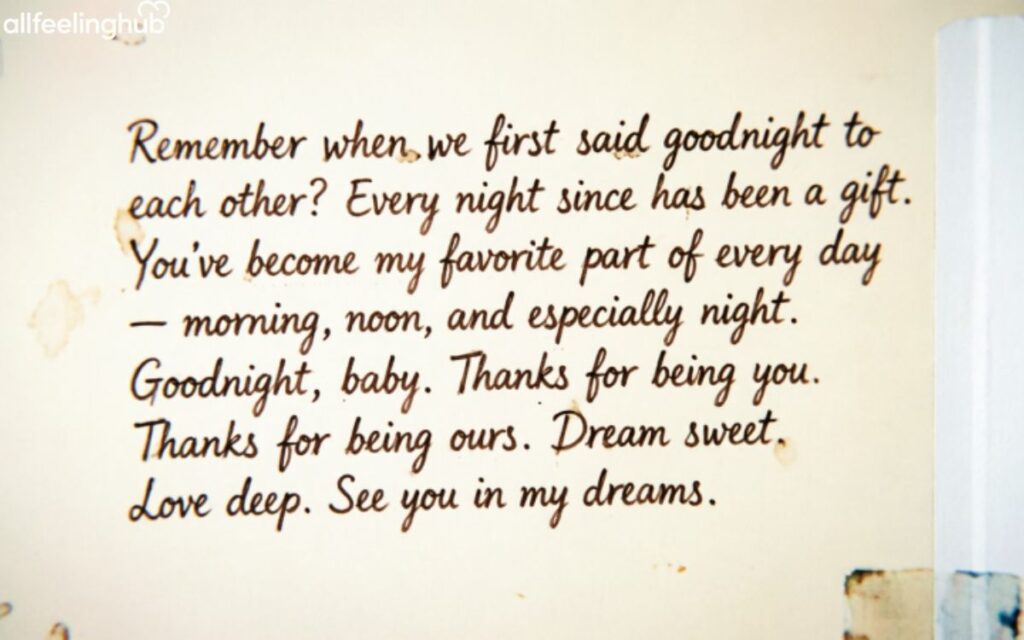 allfeelinghub
Remember when we first said goodnight to
each other? Every night since has been a gift.
You've become my favorite part of every day
— morning, noon, and especially night.
Goodnight, baby. Thanks for being you.
Thanks for being ours. Dream sweet.
Love deep. See you in my dreams.